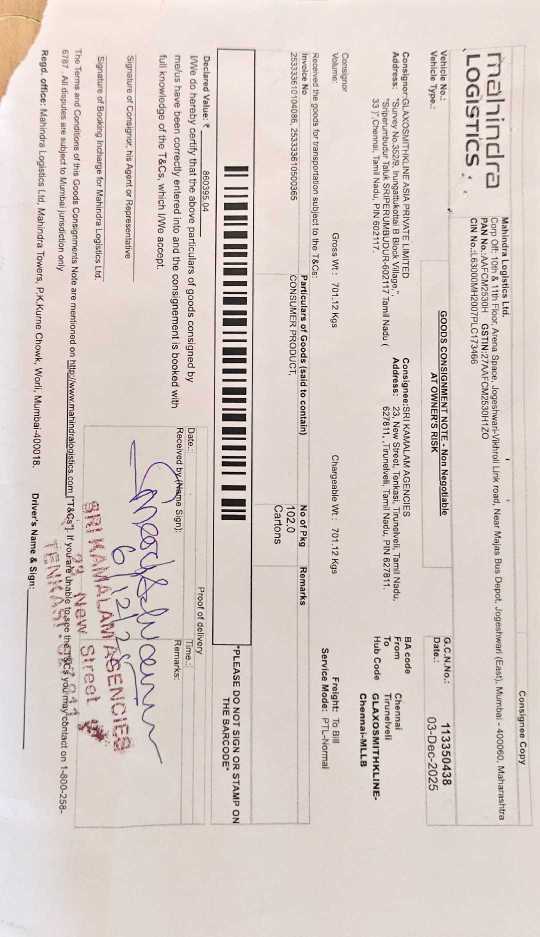 Consignee Copy
mahindra
LOGISTICS
Mahindra Logistics Ltd.
Corp Off: 10th & 11th Floor, Arena Space, Jogeshwari-Vikhroli Link road, Near Majas Bus Depot, Jogeshwari (East), Mumbai - 400060, Maharashtra
PAN No.:AAFCM2530H GSTIN:27AAFCM2530H1ZO
CIN No.:L63000MH2007PLC173466
Vehicle No.:
Vehicle Type.:
GOODS CONSIGNMENT NOTE - Non Negotiable
AT OWNER'S RISK
G.C.N.No.: 113350438
Date.: 03-Dec-2025
Consignor:GLAXOSMITHKLINE ASIA PRIVATE LIMITED
Address: "Survey No.352/9, Irungattukottai B Block Village,",
"Sriperumbudur Taluk SRIPERUMBUDUR-602117 Tamil Nadu (
33 )",Chennai, Tamil Nadu, PIN 602117.
Consignee:SRI KAMALAM AGENCIES
Address: 23, New Street, Tenkasi, Tirunelveli, Tamil Nadu,
627811, ,Tirunelveli, Tamil Nadu, PIN 627811.
BA code
From Chennai
To Tirunelveli
Hub Code GLAXOSMITHKLINE-
Chennai-MLLB
Consignor
Volume:
Gross Wt : 701.12 Kgs
Chargeable Wt : 701.12 Kgs
Freight: To Bill
Service Mode: PTL-Normal
Received the goods for transportation subject to the T&Cs:
Invoice No
Particulars of Goods (said to contain)
No of Pkg
Remarks
253333610104086, 253333610500365
CONSUMER PRODUCT,
102.0
Cartons
*PLEASE DO NOT SIGN OR STAMP ON
THE BARCODE*
Declared Value: ₹ 860395.04
I/We do hereby certify that the above particulars of goods consigned by
me/us have been correctly entered into and the consignement is booked with
full knowledge of the T&Cs, which I/We accept.
Proof of delivery
Date.:
Time.:
Received by:(Name Sign):
Remarks:
6/12/25
SRI KAMALAM AGENCIES
23 New Street
TENKASI
Signature of Consignor, his Agent or Representative
Signature of Booking Incharge for Mahindra Logistics Ltd.
The Terms and Conditions of this Goods Consignments Note are mentioned on http://www.mahindralogistics.com ["T&Cs"]. If you are unable to see the T&Cs you may contact on 1-800-258-
6787 . All disputes are subject to Mumbai jurisdiction only
Regd. office: Mahindra Logistics Ltd, Mahindra Towers, P.K.Kurne Chowk, Worli, Mumbai-400018.
Driver's Name & Sign: